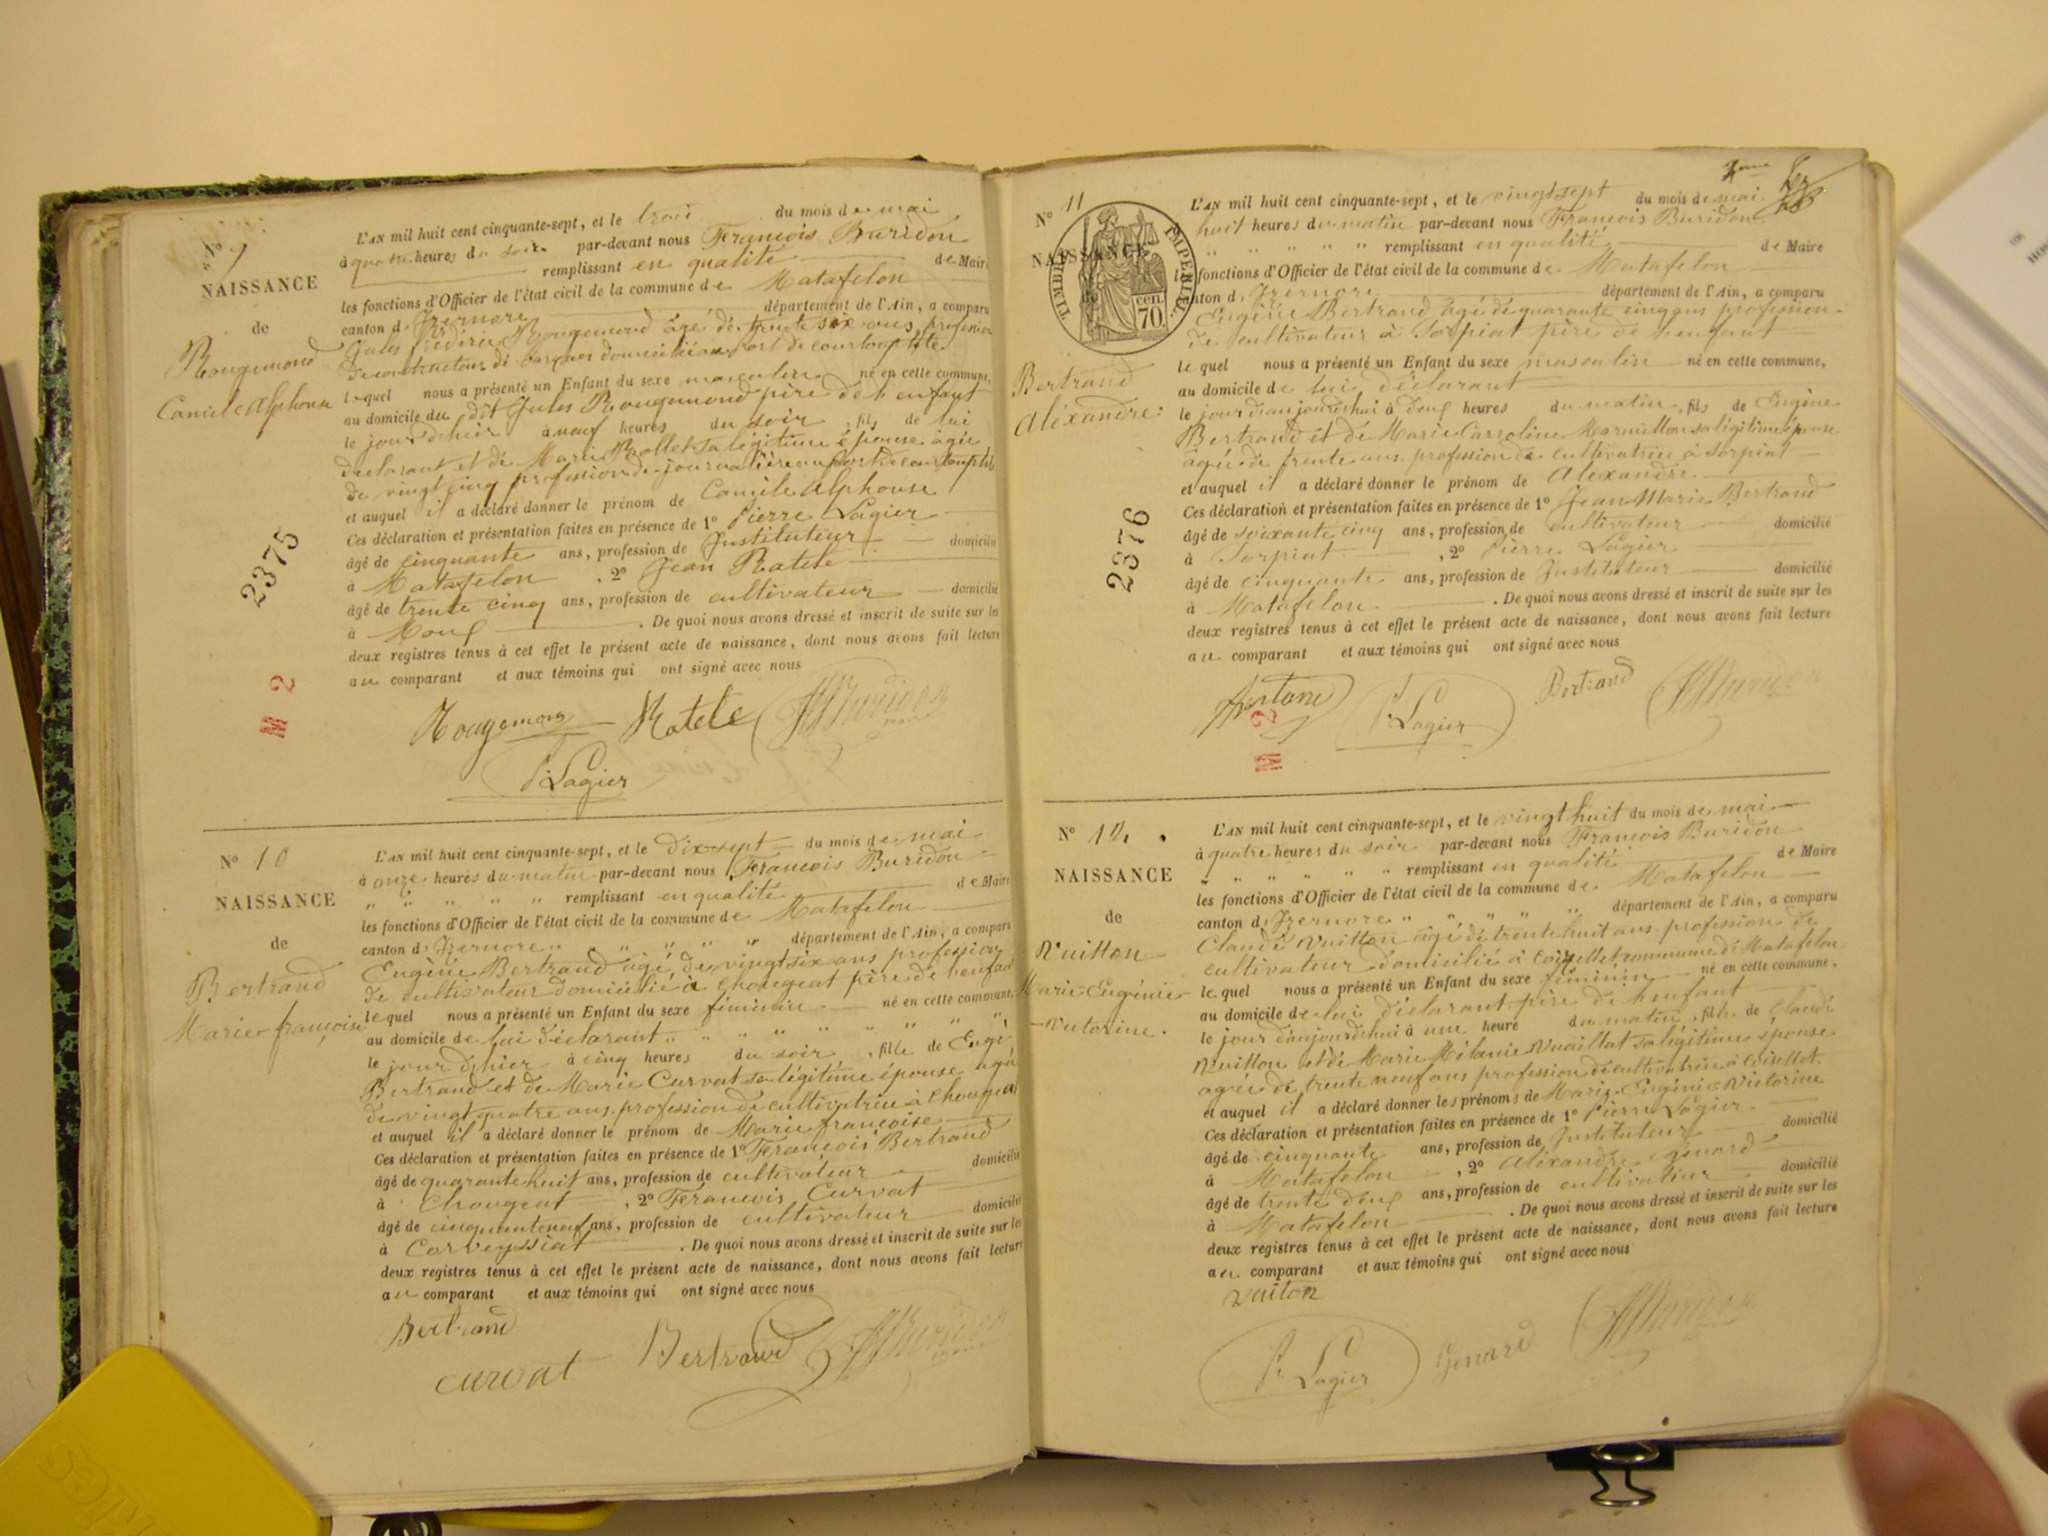 N° 9
NAISSANCE
de
Rougemond
Camile Alphonse
2375
M 2
L'AN mil huit cent cinquante-sept, et le trois du mois de mai
à quatre heures du soir par-devant nous François Buridon
remplissant en qualité de Maire
les fonctions d'Officier de l'état civil de la commune de Matafelon
canton d'Izernore département de l'Ain, a comparu
Jules frédéric Rougemond âgé de trente six ans profession
de constructeur de barques domicilié au port de courtouphle
lequel nous a présenté un Enfant du sexe masculin né en cette commune,
au domicile du dit Jules Rougemond père de l'enfant
le jour d'hier à neuf heures du soir, fils de lui
déclarant et de Marie Rollet sa légitime épouse âgée
de vingt cinq profession de journalière au port de courtouphle
et auquel il a déclaré donner le prénom de Camile Alphonse
Ces déclaration et présentation faites en présence de 1° Pierre Lagier
âgé de cinquante ans, profession de Instituteur domicilié
à Matafelon, 2° Jean Ratele
âgé de trente cinq ans, profession de cultivateur domicilié
à . De quoi nous avons dressé et inscrit de suite sur les
deux registres tenus à cet effet le présent acte de naissance, dont nous avons fait lecture
au comparant et aux témoins qui ont signé avec nous
Rougemond Ratele Buridon
P. Lagier
N° 10
NAISSANCE
de
Bertrand
Marie françoise
L'AN mil huit cent cinquante-sept, et le Dix sept du mois de mai
à onze heures du matin par-devant nous François Buridon
" " " " " remplissant en qualité de Maire
les fonctions d'Officier de l'état civil de la commune de Matafelon
canton d'Izernore " " " " " département de l'Ain, a comparu
Eugène Bertrand âgé de vingt six ans profession
de cultivateur domicilié à Chougeat père de l'enfant
lequel nous a présenté un Enfant du sexe féminin né en cette commune,
au domicile de lui déclarant " " " " " " "
le jour d'hier à cinq heures du soir, fille de Eugè
Bertrand et de Marie Curvat sa légitime épouse âgée
de vingt quatre ans profession de cultivatrice à Chougeat
et auquel il a déclaré donner le prénom de Marie françoise
Ces déclaration et présentation faites en présence de 1° François Bertrand
âgé de quarante huit ans, profession de cultivateur domicilié
à Chougeat, 2° François Curvat
âgé de cinquante neuf ans, profession de cultivateur domicilié
à Corveyssiat. De quoi nous avons dressé et inscrit de suite sur les
deux registres tenus à cet effet le présent acte de naissance, dont nous avons fait lecture
au comparant et aux témoins qui ont signé avec nous
Bertrand
curvat Bertrand Buridon
N° 11
NAISSANCE
de
TIMBRE IMPERIAL
70 cen.
Bertrand
Aléxandre
2376
M 2
L'AN mil huit cent cinquante-sept, et le vingt sept du mois de mai
huit heures du matin par-devant nous François Buridon
" " " " " remplissant en qualité de Maire
fonctions d'Officier de l'état civil de la commune de Matafelon
canton d'Izernore département de l'Ain, a comparu
Eugène Bertrand âgé de quarante cinq ans profession
de cultivateur à Sorpiat père de l'enfant
lequel nous a présenté un Enfant du sexe masculin né en cette commune,
au domicile de lui déclarant
le jour d'aujourd'hui à deux heures du matin, fils de Eugène
Bertrand et de Marie Carroline Marmillon sa légitime épouse
âgée de trente ans profession de cultivatrice à Sorpiat
et auquel il a déclaré donner le prénom de Aléxandre
Ces déclaration et présentation faites en présence de 1° Jean Marie Bertrand
âgé de soixante cinq ans, profession de cultivateur domicilié
à Sorpiat, 2° Pierre Lagier
âgé de cinquante ans, profession de Instituteur domicilié
à Matafelon. De quoi nous avons dressé et inscrit de suite sur les
deux registres tenus à cet effet le présent acte de naissance, dont nous avons fait lecture
au comparant et aux témoins qui ont signé avec nous
P. Lagier Bertrand Buridon
N° 12
NAISSANCE
de
Vuitton
Marie-Eugénie
Victorine
L'AN mil huit cent cinquante-sept, et le vingt huit du mois de mai
à quatre heures du soir par-devant nous François Buridon
" " " " " " remplissant en qualité de Maire
les fonctions d'Officier de l'état civil de la commune de Matafelon
canton d'Izernore " " " " " département de l'Ain, a comparu
Claude Vuitton âgé de trente huit ans profession de
cultivateur domicilié à Coiselet commune de Matafelon
lequel nous a présenté un Enfant du sexe féminin né en cette commune,
au domicile de lui déclarant père de l'enfant
le jour d'aujourd'hui à une heure du matin, fille de Claude
Vuitton et de Marie Mélanie Vuaillat sa légitime épouse
âgée de trente neuf ans profession de cultivatrice à Coiselet
et auquel il a déclaré donner les prénoms de Marie Eugénie Victorine
Ces déclaration et présentation faites en présence de 1° Pierre Lagier
âgé de cinquante ans, profession de Instituteur domicilié
à Matafelon, 2° Aléxandre Genard
âgé de trente deux ans, profession de cultivateur domicilié
à Matafelon. De quoi nous avons dressé et inscrit de suite sur les
deux registres tenus à cet effet le présent acte de naissance, dont nous avons fait lecture
au comparant et aux témoins qui ont signé avec nous
vuiton
P. Lagier Genard Buridon